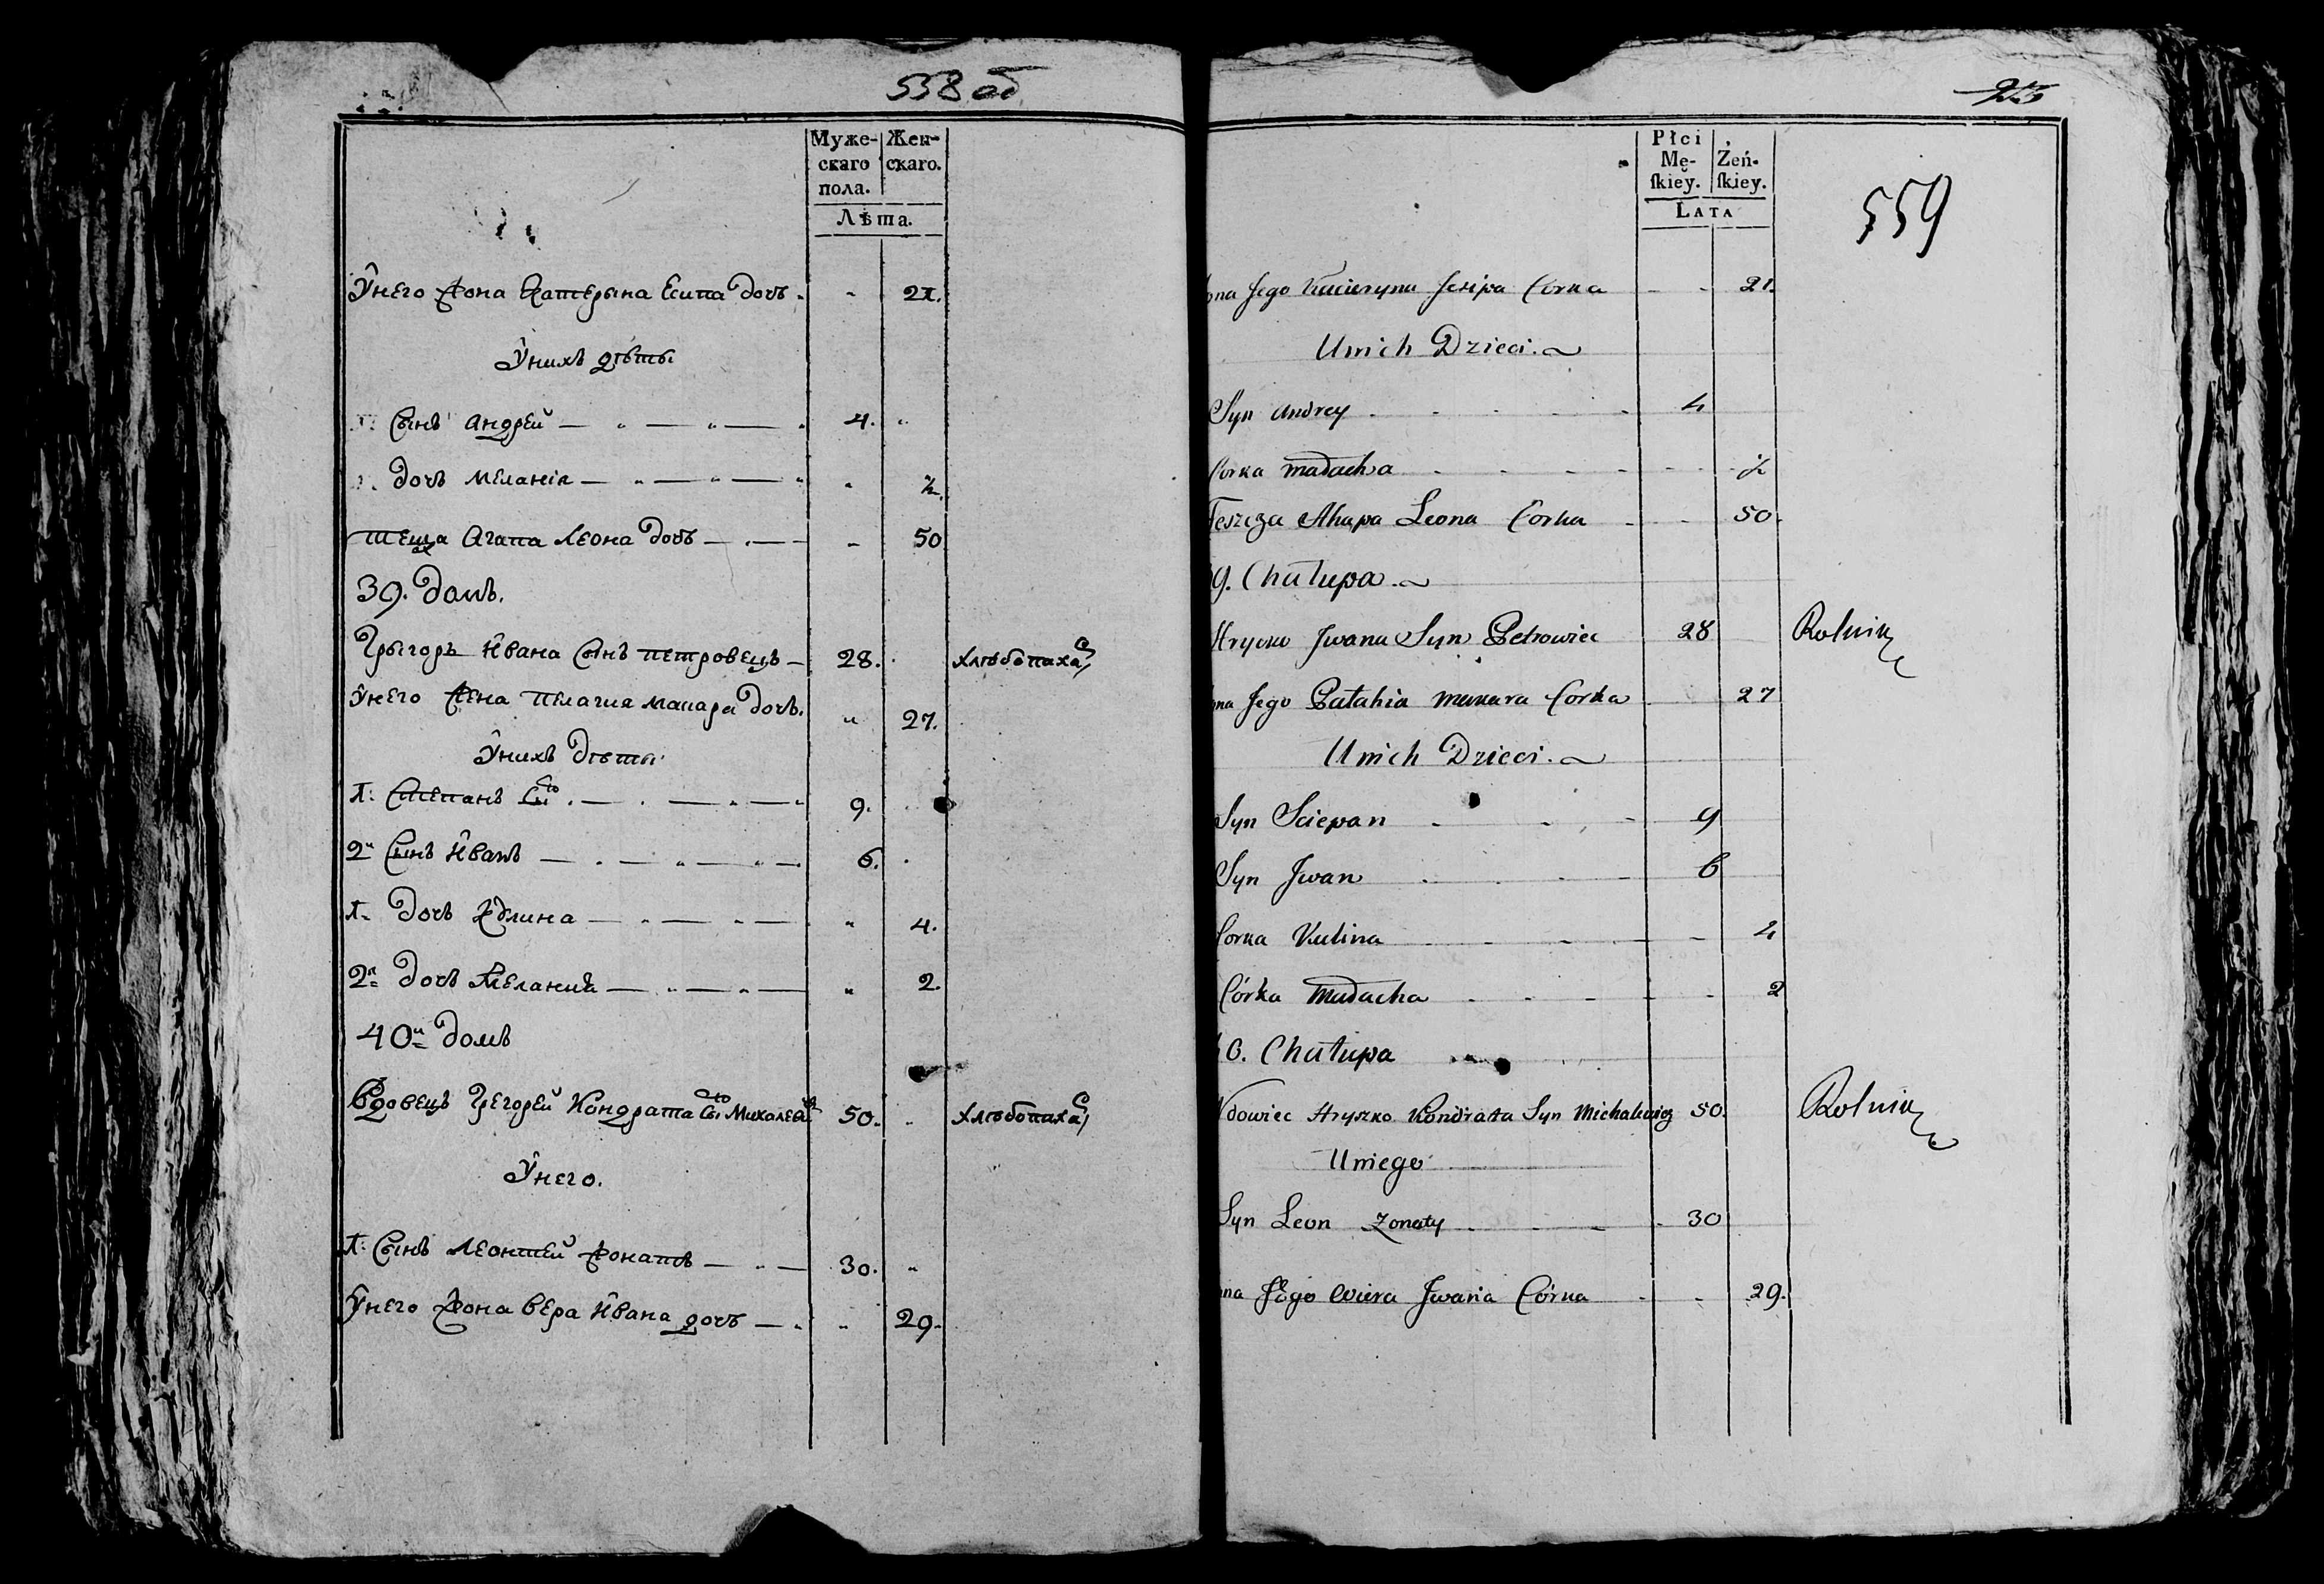 558 об
Муже- Жен-
скаго скаго.
пола.
Лѣта.
Унего жона Катерына Есипа дочь - - 21.
Унихъ дѣты
Сынъ андрей 4.
дочь меланія ½
теща Агапа Леона дочь - 50
39. домъ.
Грыгоръ Ивана Сынъ петровецъ 28. хлѣбопаха
Унего жена пелагия макара дочь. 27.
Унихъ дѣты
1: Степанъ Сы 9.
2й Сынъ Иванъ 6.
1. дочь Кулина 4.
2я дочь Мелания 2.
40й домъ
Вдовецъ Грегорей Кондрата Сы Михалеви 50. хлѣбопаха
Унего.
1: Сынъ Леонтей жонатъ 30.
Унего жона вера Ивана дочь 29.
559
Płci Żeń-
Mę- skiey.
skiey.
LATA
na Jego Kacieryna Jesipa Corka 21.
Unich Dzieci.
Syn Andrey 4
Corka madacha ½
Teszcza Ahapa Leona Corka 50.
9. Chałupa
Hrycko Jwana Syn Petrowiec 28 Rolnik
na Jego Pałahia makara Corka 27
Unich Dzieci.
Syn Sciepan 9
Syn Jwan 6
Corka Kulina 4
Córka Madacha 2
0. Chałupa
Wdowiec Hryszko Kondrata Syn Michalewicz 50. Rolnik
Uniego
Syn Leon Zonaty 30
na Jego Wiera Jwana Córka 29.